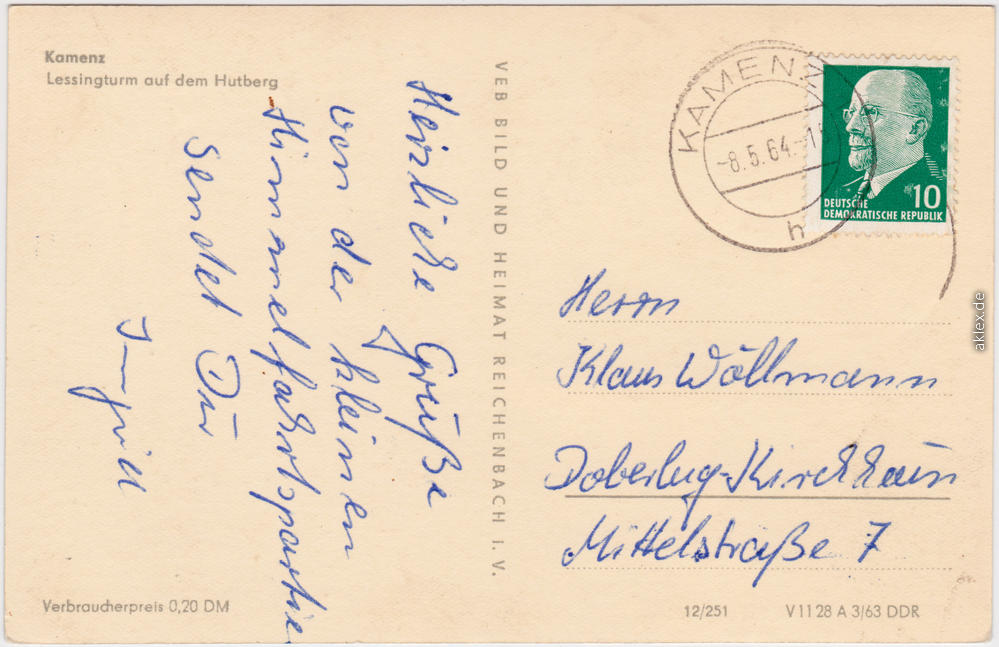 Kamenz
Lessingturm auf dem Hutberg
Herzliche Grüße
von der kleinen
Himmelfahrtspartie
sendet Dir
VEB BILD UND HEIMAT REICHENBACH I. V.
KAMENZ
-8.5.64.-1
h
10
DEUTSCHE
DEMOKRATISCHE REPUBLIK
Herrn
Klaus Wöllmann
Doberlug-Kirchhain
Mittelstraße 7
Verbraucherpreis 0,20 DM
12/251
V 11 28 A 3/63 DDR
aklex.de